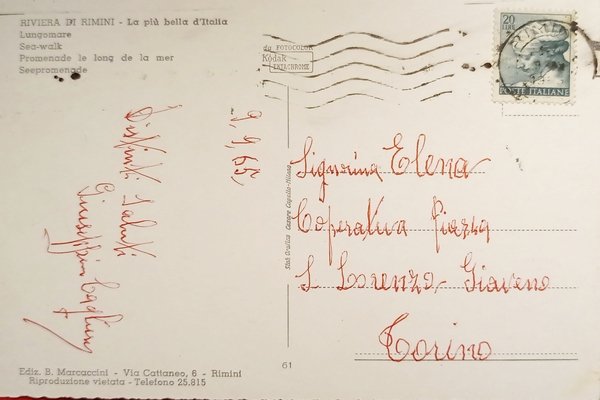 RIVIERA DI RIMINI - La più bella d'Italia
Lungomare
Sea-walk
Promenade le long de la mer
Seepromenade
da FOTOCOLOR
Kodak
EKTACHROME
20
LIRE
POSTE ITALIANE
9,9,65
Distinti Saluti
Signorina Elena
Coperativa Piazza
S Lorenzo Giaveno
Torino
Stab. Grafico Cesare Capello-Milano
61
Ediz. B. Marcaccini - Via Cattaneo, 6 - Rimini
Riproduzione vietata - Telefono 25.815